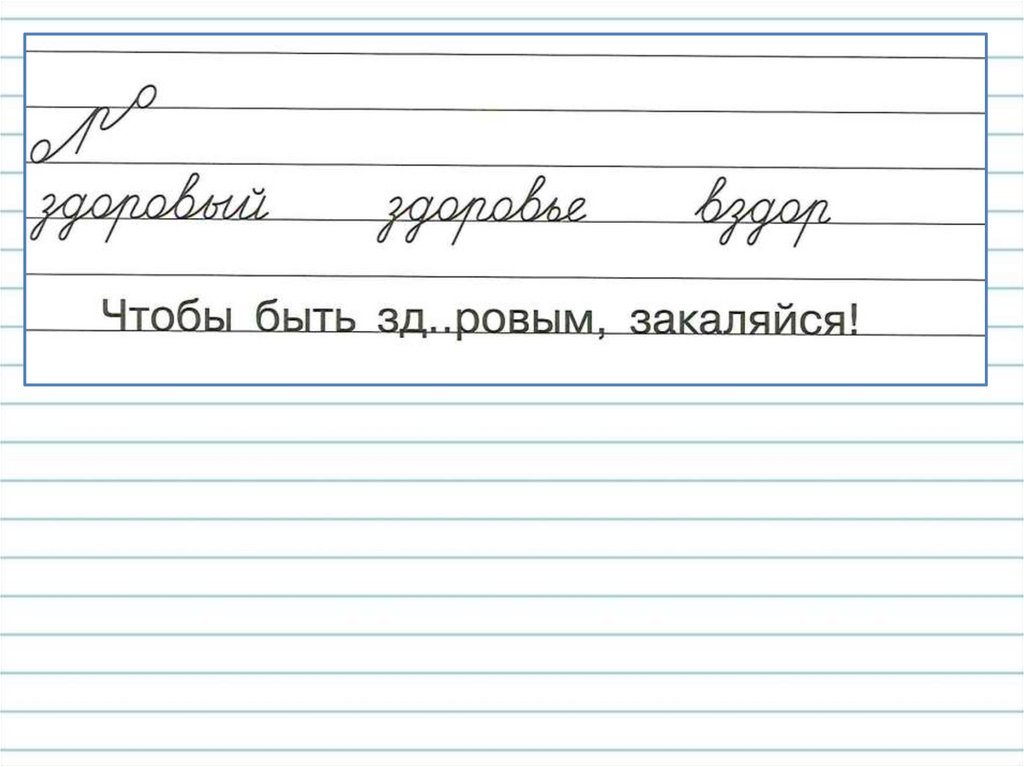 здоровый здоровье вздор
Чтобы быть зд..ровым, закаляйся!